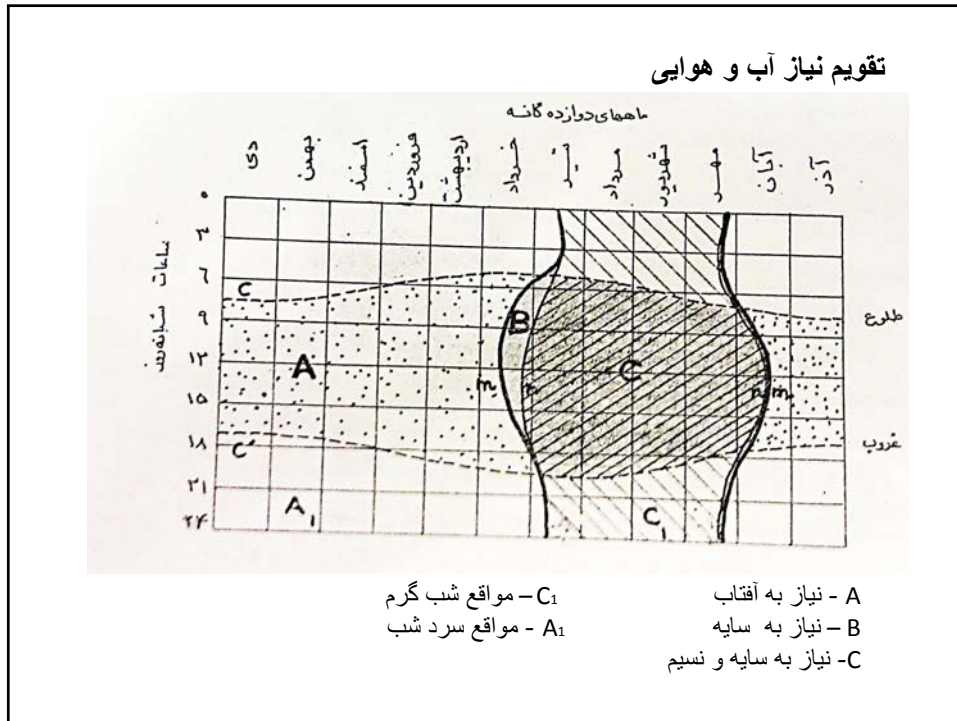 تقویم نیاز آب و هوایی
ماههای دوازده گانه
دی بهمن اسفند فروردین اردیبهشت خرداد تیر مرداد شهریور مهر آبان آذر
ساعات شبانه‌روز
۰
۳
۶
C
۹
طلوع
B
۱۲
A
C
m n n m
۱۵
۱۸
غروب
C'
۲۱
A₁
C₁
۲۴
A - نیاز به آفتاب
B – نیاز به سایه
C- نیاز به سایه و نسیم
C₁ – مواقع شب گرم
A₁ - مواقع سرد شب